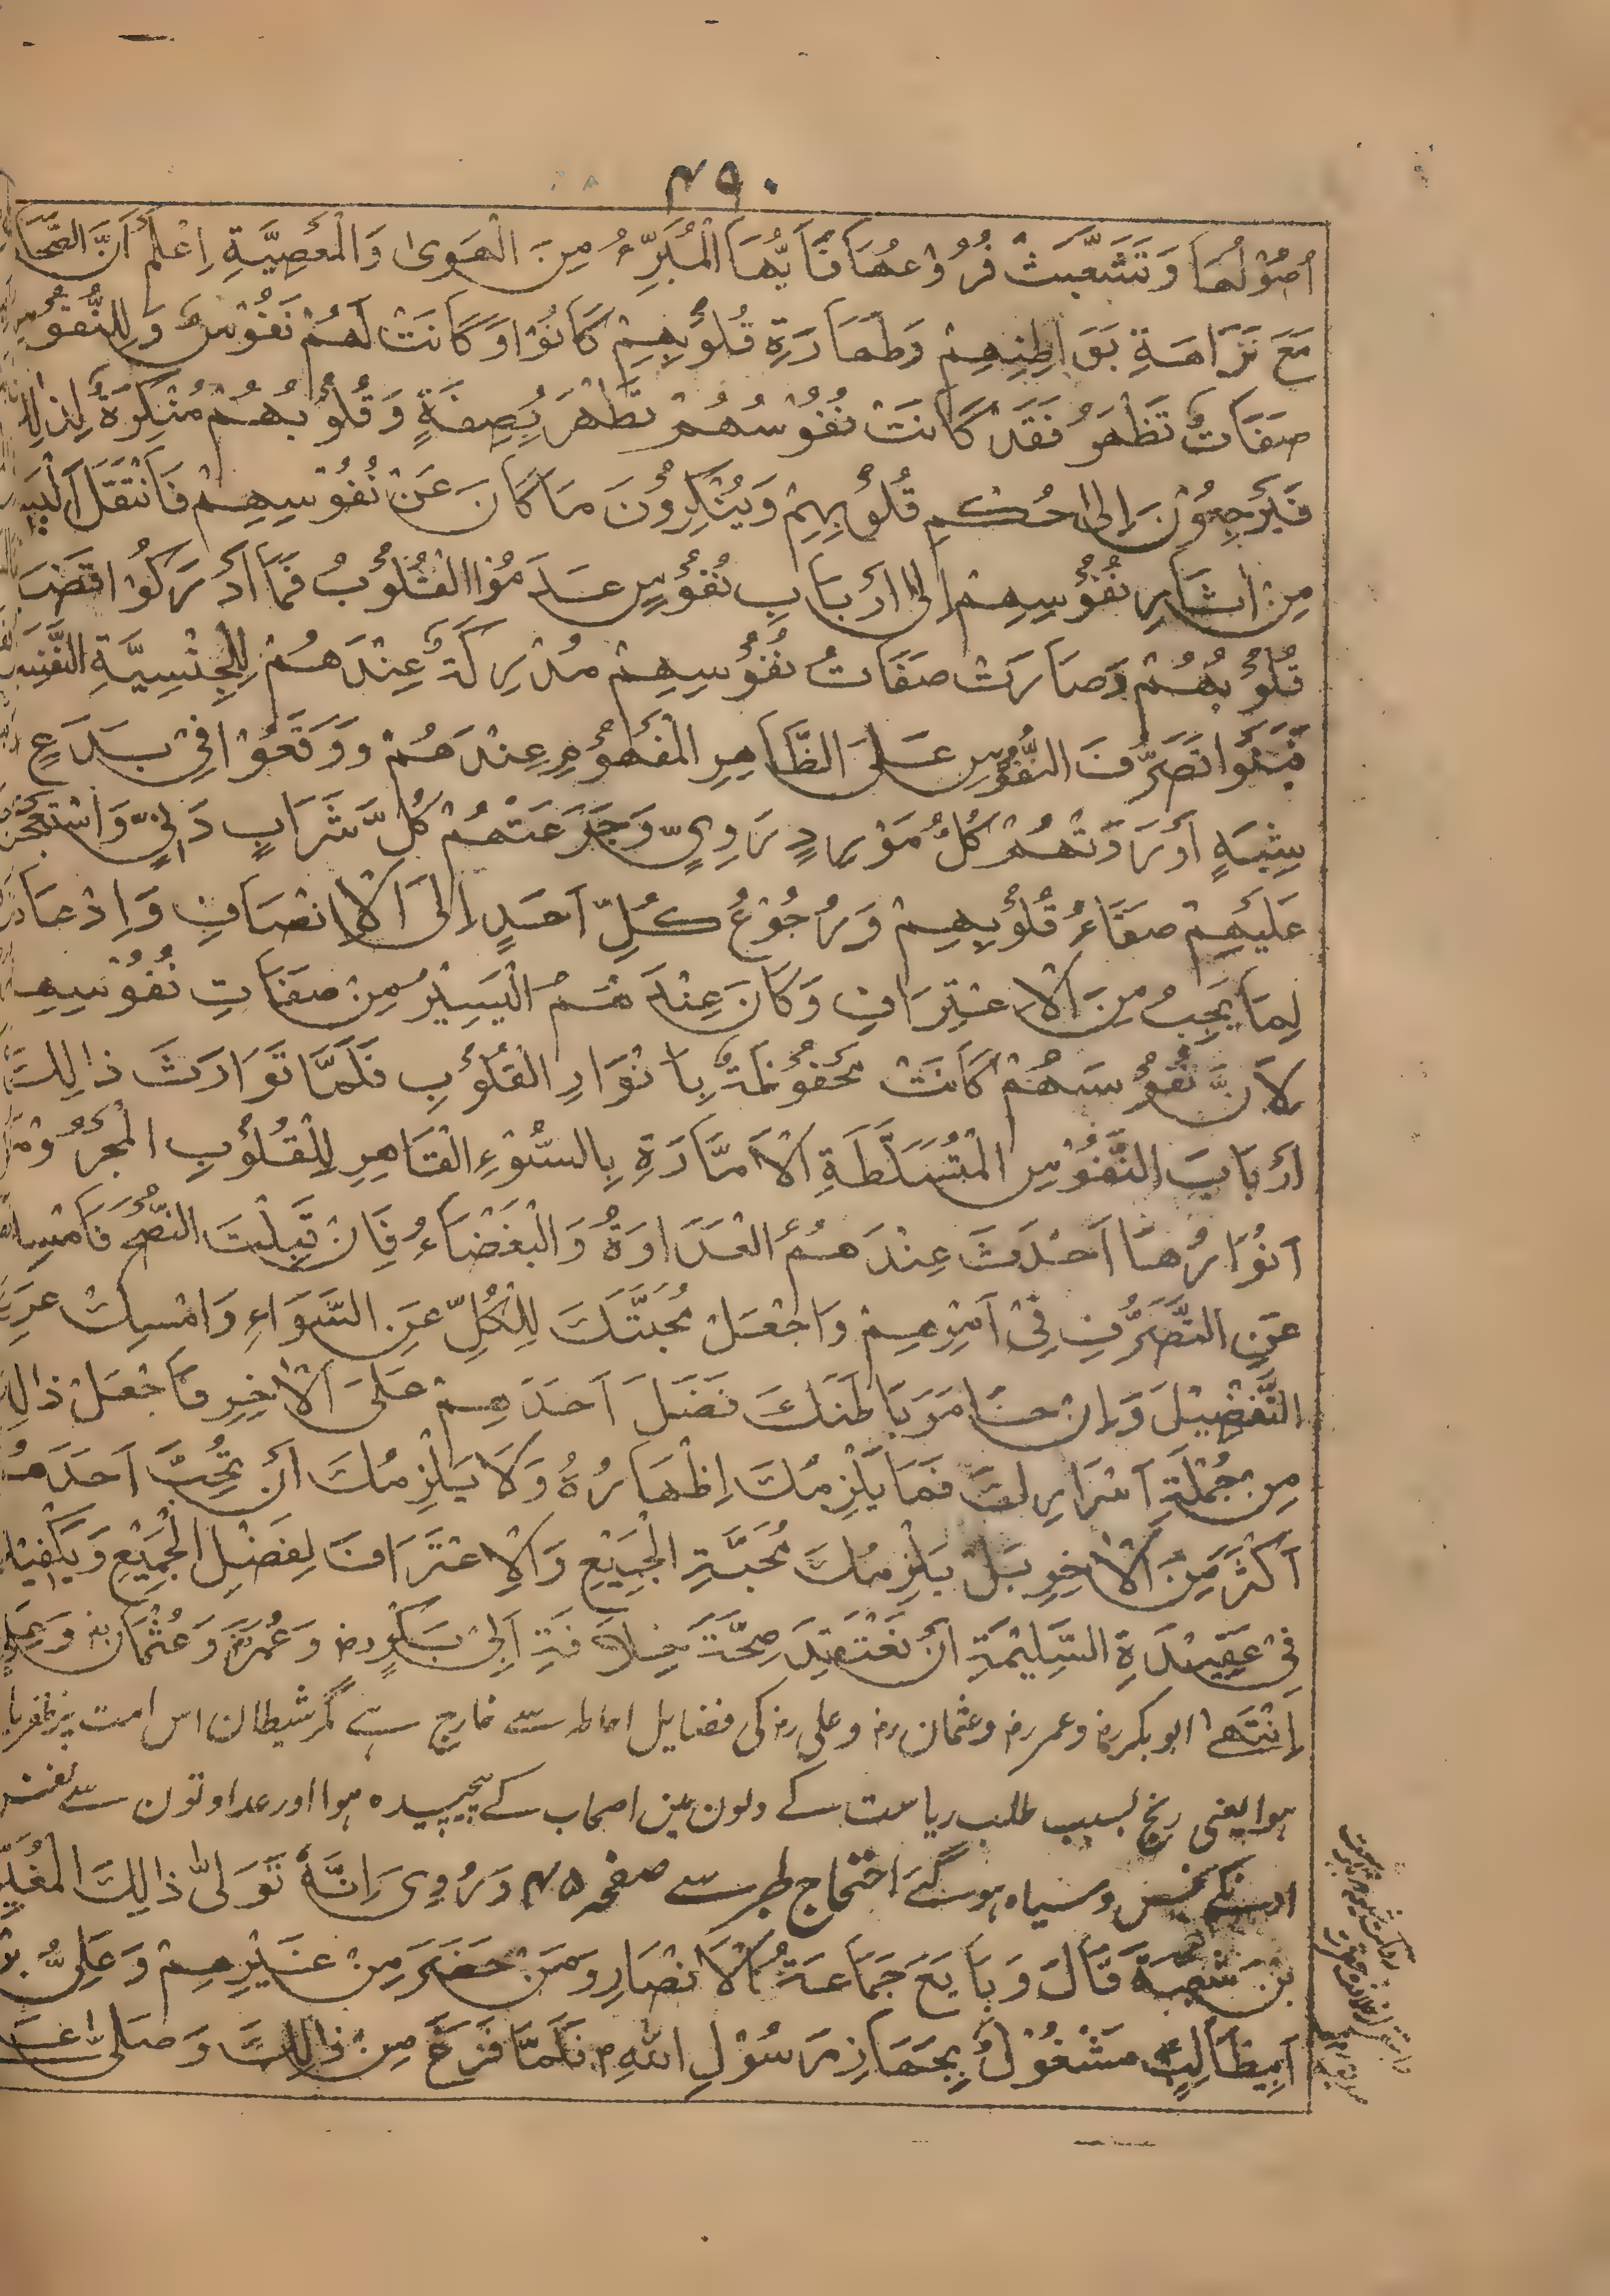 ۴۹۰
اُصُوْلُهَا وَتَشَعَّبَتْ فُرُوْعُهَا فَاَیُّهَا الْمُبَرِّءُ مِنَ الْهَوٰی وَالْمَعْصِیَّةِ اِعْلَمْ اَنَّ الصَّحَا
مَعَ نَزَاهَةِ بَوَاطِنِهِمْ وَطَهَارَةِ قُلُوْبِهِمْ کَانُوْا وَکَانَتْ لَهُمْ نَفُوْسٌ وَلِلنُّفُوْسِ
صَفَاتٌ تَظْهَرُ فَقَدْ کَانَتْ نُفُوْسُهُمْ تَظْهَرُ بِصِفَةٍ وَقُلُوْبُهُمْ مُنْکِرَةٌ لِذٰلِ
فَیَرْجِعُوْنَ اِلٰی حُکْمِ قُلُوْبِهِمْ وَیُنْکِرُوْنَ مَا کَانَ عَنْ نُفُوْسِهِمْ فَانْتَقَلَ الْیَسِ
مِنْ اٰثَارِ نُفُوْسِهِمْ اِلٰی اَرْبَابِ نُفُوْسٍ عَدَمُوْا الْقُلُوْبُ فَمَا اَدْرَکُوْا قَضَ
قُلُوْبُهُمْ وَصَارَتْ صَفَاتُ نُفُوْسِهِمْ مُدْرِکَةٌ عِنْدَهُمْ لِلْجِنْسِیَّةِ النَّفْسِ
فَبَنَوْا تَصَرُّفَ النُّفُوْسِ عَلَی الظَّاهِرِ الْمَفْهُوْمِ عِنْدَهُمْ وَوَقَعُوْا فِیْ بِدَعٍ
شِبَهٍ اَوْرَدَتْهُمْ کُلَّ مَوْرِدٍ رَوِیٍّ وَجَرَعَتْهُمْ کُلَّ شَرَابٍ دَنِیٍّ وَاسْتَعْجَ
عَلَیْهِمْ صَفَاءُ قُلُوْبِهِمْ وَرُجُوْعُ کُلِّ اَحَدٍ اِلَی الْاِنْصَافِ وَاِذْعَا
لِمَا یَجِبُ مِنَ الْاِعْتِرَافِ وَکَانَ عِنْدَهُمْ الْیَسِیْرُ مِنْ صَفَاتِ نُفُوْسِهِ
لِاَنَّ نُفُوْسَهُمْ کَانَتْ مَحْفُوْظَةٌ بِاَنْوَارِ الْقُلُوْبِ فَلَمَّا تَوَارَثَ ذٰلِكَ
اَرْبَابَ النُّفُوْسِ الْمُتَسَلَّطَةِ الْاَمَّارَةِ بِالسُّوْءِ الْقَاهِرِ لِلْقُلُوْبِ الْمَحْرُوْمَ
اَنْوَارُهَا اَحْدَثَ عِنْدَهُمُ الْعَدَاوَةُ وَالْبَغْضَاءُ فَاِنْ قَبِلْتَ النُّصْحَ فَامْسِ
عَنِ التَّصَرُّفِ فِیْ اَمْرِهِمْ وَاجْعَلْ مُحَبَّتَكَ لِلْکُلِّ عَنِ السَّوَاءِ وَامْسِكْ عَنِ
التَّفْضِیْلَ وَاِنْ خَامَرَ بَاطِنَكَ فَضَلَ اَحَدَهِمْ عَلَی الْاٰخِرِ فَاجْعَلْ ذٰلِ
مِنْ جُمْلَةِ اَسْرَارِكَ فَمَا یَلْزِمُكَ اِظْهَارُهُ وَلَا یَلْزِمُكَ اَنْ تُحِبَّ اَحَدَهُمْ
اَکْثَرَ مِنَ الْاٰخِرِ بَلْ یَلْزِمُكَ مُحَبَّةِ الْجَمِیْعِ وَالْاِعْتَرَافَ لِفَضْلِ الْجَمِیْعِ وَیَکْفِیْكَ
فِیْ عَقِیْدَةِ السَّلِیْمَةِ اَنْ تَعْتَقِدَ صِحَّةَ خِلَافَةِ اَبِیْ بَکْرٍ رض وَعُمَرَ رض وَعُثْمَانَ رض وَعَلِیٍّ
اِنْتَهٰی ابو بکر رض وعمر رض وعثمان رض وعلی رض کی فضایل احاطہ سے خارج ہے مگر شیطان اس امت پر ظفریا
ہوا یعنی رنج بسبب طلب ریاست کے دلون مین اصحاب کے پیچیدہ ہوا اور عداوتون سے نفس
اونکے نجس وسیاہ ہوگئے احتجاج طبرسے صفحہ ۴۵ وَرُوِیَ اَنَّهُ تَوَلّٰی ذٰلِكَ الْمُغِیْ
بْنَ شُعْبَةَ قَالَ وَبَایَعَ جَمَاعَةُ الْاَنْصَارِ وَمَنْ حَضَرَ مِنْ غَیْرِهِمْ وَعَلِیُّ بْ
اَبِیْطَالِبٍ مَشْغُوْلٌ بِجَهَازِ رَسُوْلِ اللّٰهِ م فَلَمَّا فَرَغَ مِنْ ذٰلِكَ وَصَلّٰی عَ